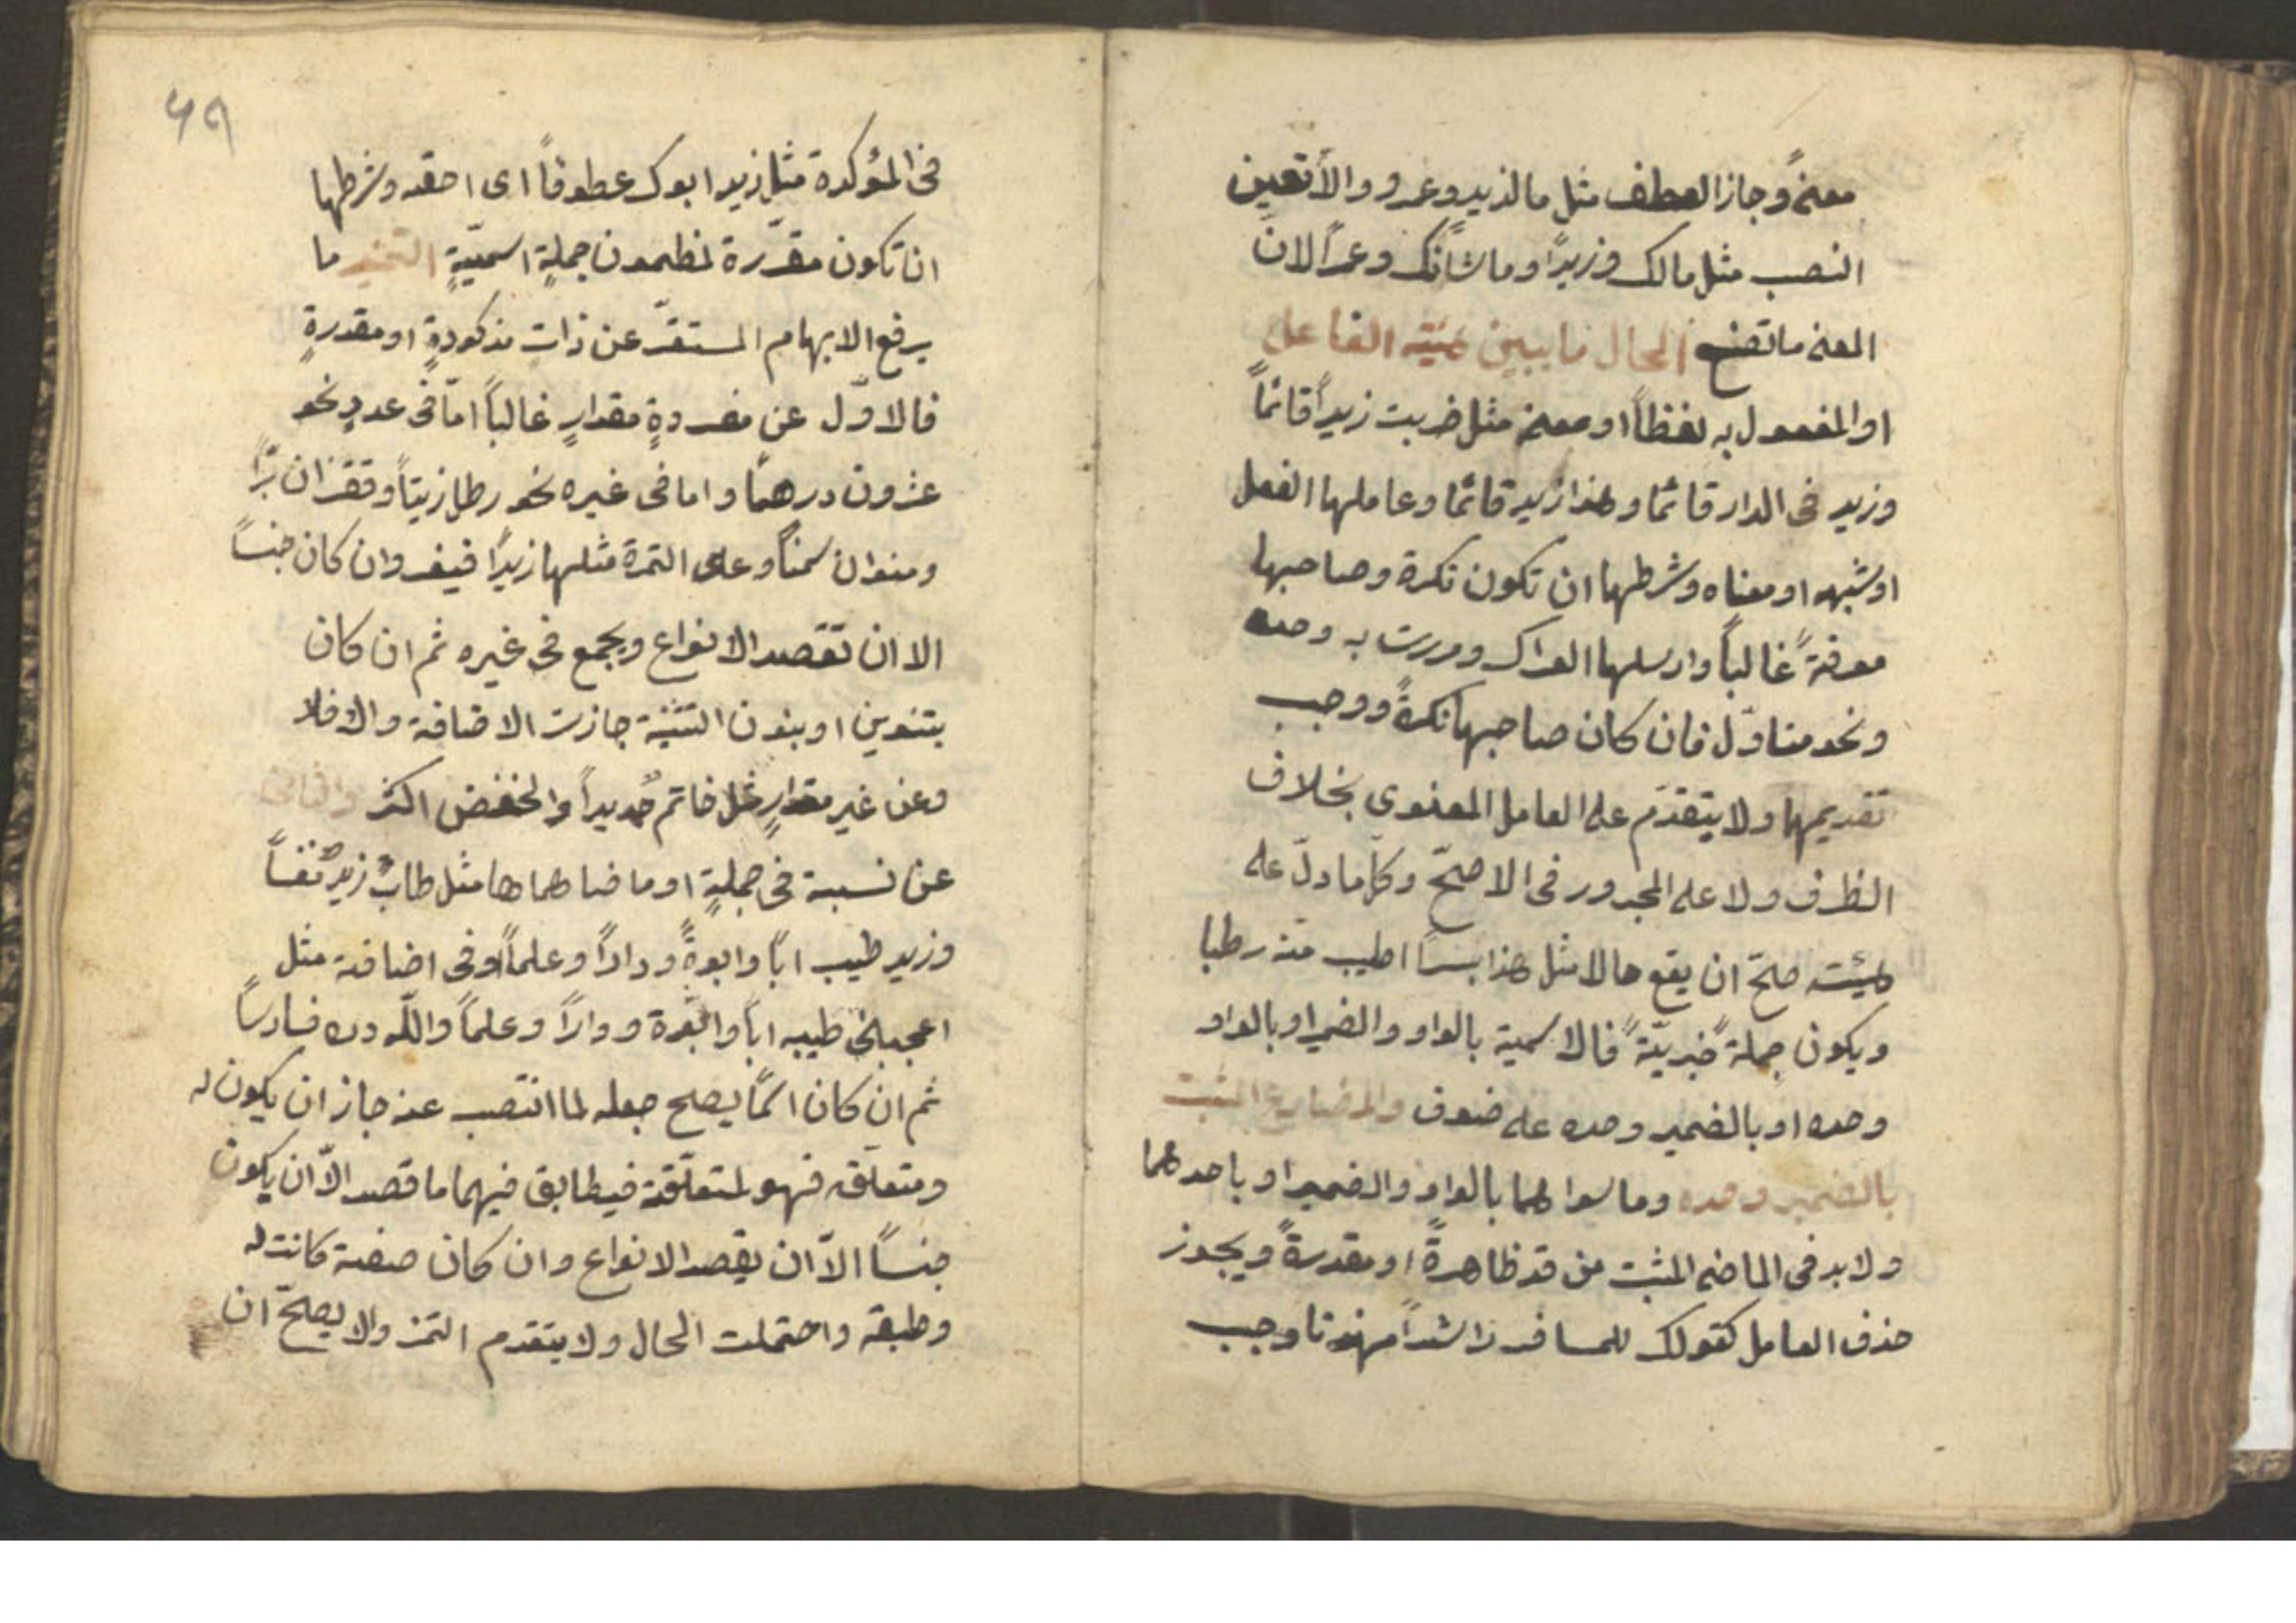 معنىً وجاز العطف مثل ما لزيد وعمرو والا تعين
النصب مثل مالك وزيدًا وما شانك وعمرًا لان
المعنى ما تصنع الحال ما يبين هيئة الفاعل
او المفعول به لفظاً او معنى مثل ضربت زيداً قائماً
وزيد في الدار قائمًا وهذا زيد قائمًا وعاملها الفعل
او شبهه او معناه وشرطها ان تكون نكرة وصاحبها
معرفةً غالباً وارسلها العراك ومررت به وحده
ونحو متاوّل فان كان صاحبها نكرةً ووجب
تقديمها ولا يتقدّم على العامل المعنوى بخلاف
الظرف ولا على المجرور في الاصحّ وكل ما دلّ على
هيئته صلحّ ان يقع حالا مثل هذا بسرًا اطيب منه رطبا
ويكون جملةً خبريّةً فالاسمية بالواو والضمير او بالواو
وحده او بالضمير وحده على ضعف والمضارع المثبت
بالضمير وحده وما سواهما بالواو والضمير او باحدهما
ولا بد في الماضى المثبت من قد ظاهرةً او مقدرةً ويجوز
حذف العامل كقولك للمسافر راشداً مهديا وجب
٥٩
في المؤكدة مثل زيد ابوك عطوفاً اى احقه وشرطها
ان تكون مقرّرة لمظمون جملةٍ اسميّةٍ التميز ما
يرفع الابهام المستقرّ عن ذات مذكورةٍ او مقدرةٍ
فالاوّل عن مفردةٍ مقدارٍ غالباً امّا في عددٍ نحو
عشرون درهمًا واما في غيره نحو رطل زيتاً وقفزان برًّا
ومنوان سمناً وعلى التمرة مثلها زبدًا فيفرد ان كان جنساً
الا ان تقصد الانواع ويجمع في غيره ثم ان كان
بتنوين او بنون التثنية جازت الاضافة والّا فلا
وعن غير مقدارٍ مثل خاتم حديداً والخفض اكثر والثانى
عن نسبة في جملةٍ او ما ضاهاها مثل طاب زيدٌ نفساً
وزيد طيب اباً وابوةً وداراً وعلماً او في اضافة مثل
اعجبنى طيبه اباً وابوّة وداراً وعلماً واللّه دره فارساً
ثم ان كان اسمًا يصلح جعله لما انتصب عنه جاز ان يكون له
ومتعلّقه فهو لمتعلّقة فيطابق فيهما ما قصد الّا ان يكون
جنساً الاّ ان يقصد الانواع وان كان صفة كانت له
وطبقه واحتملت الحال ولا يتقدم التمز والا يصلحّ ان